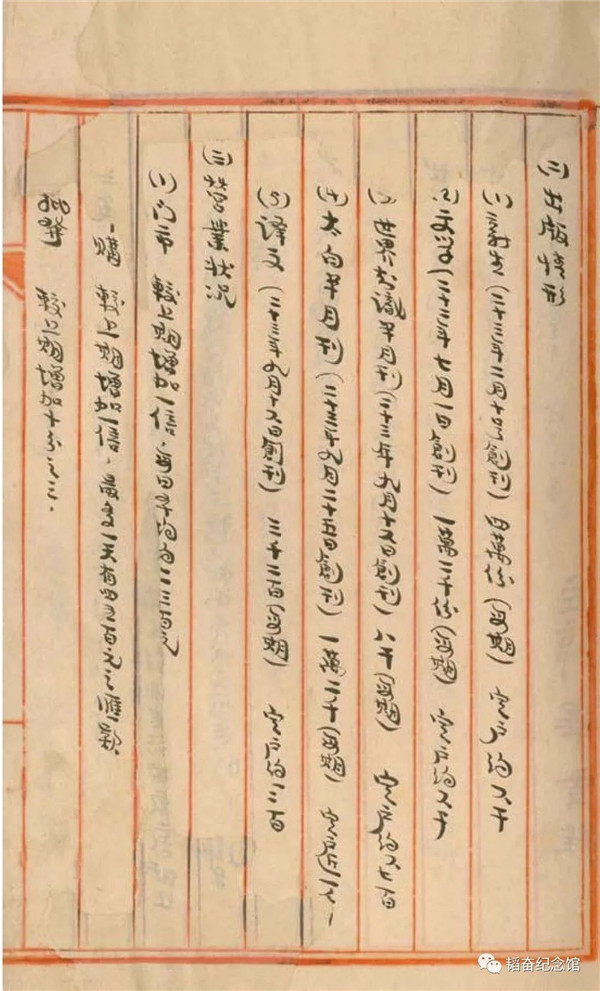 (二)出版情形
(1)新生(二十三年二月十号創刊) 四萬份(每期) 定户约 千
(2)文学(二十二年七月一日創刊) 一萬二千份(每期) 定户约 千
(3)世界知識半月刊(二十三年九月十六日創刊) 八千(每期) 定户约 七百
(4)太白半月刊(二十三年九月二十五日創刊) 一萬二千(每期) 定户近一千
(5)译文(二十三年九月十六日創刊) 三千二百(每期) 定户约 三百
(三)營業狀况
(1)门市 較上期增加一倍,每日平均为二三百元
購 較上期增加一倍,最多一天有四五百元之匯款
批發 較上期增加十分之三.
韬奋纪念馆